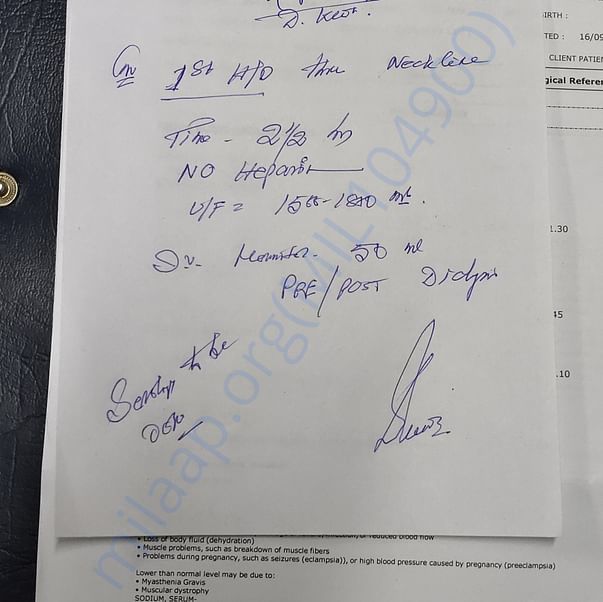 IRTH :
TED : 16/09
CLIENT PATIE
gical Refere
1st H/D thru Neckline
Time - 2½ hr
NO Heparin
U/F = 1500-1800 ml.
50 ml
PRE/POST Dialysis
1.30
45
.10
milaap.org(MIL104900)
reduced blood flow
• Loss of body fluid (dehydration)
• Muscle problems, such as breakdown of muscle fibers
• Problems during pregnancy, such as seizures (eclampsia)), or high blood pressure caused by pregnancy (preeclampsia)
Lower than normal level may be due to:
• Myasthenia Gravis
• Muscular dystrophy
SODIUM, SERUM-